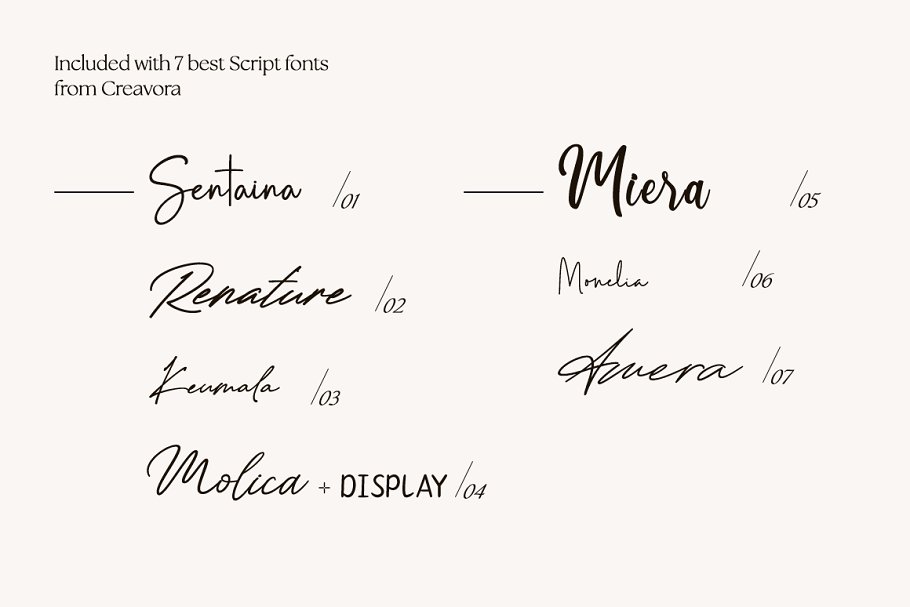 Included with 7 best Script fonts
from Creavora
Sentaina /01
Renature /02
Keumala /03
Molica + DISPLAY /04
Miera /05
Monelia /06
Amera /07